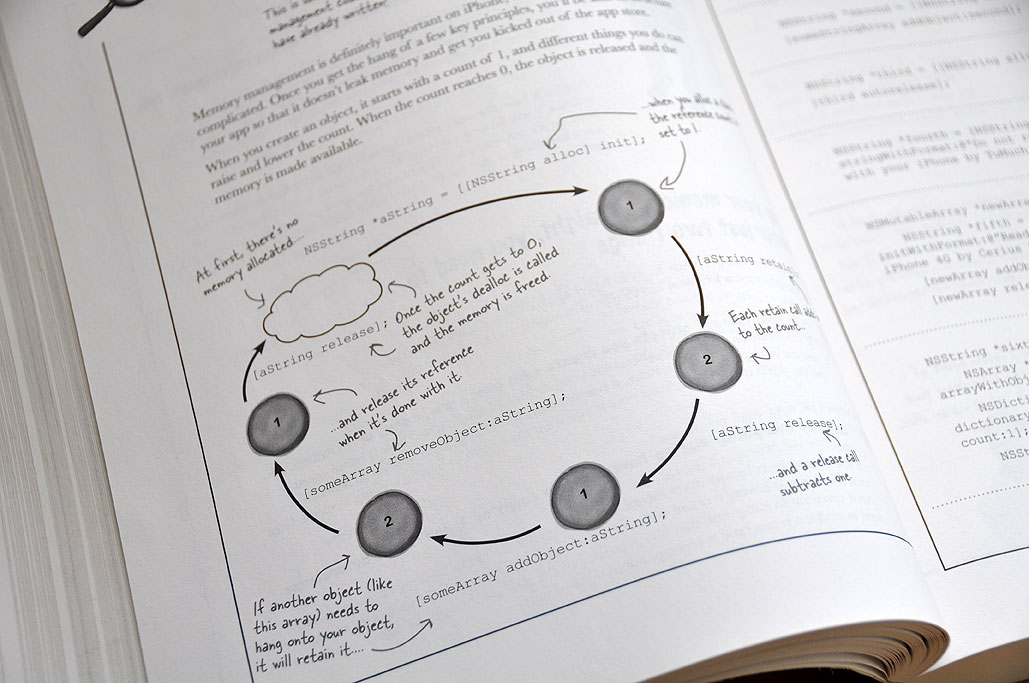 This is
management
have already written.
Memory management is definitely important on iPhone,
complicated. Once you get the hang of a few key principles, you'll be
your app so that it doesn't leak memory and get you kicked out of the app store.
When you create an object, it starts with a count of 1, and different things you do can
raise and lower the count. When the count reaches 0, the object is released and the
memory is made available.
...when you alloc a
the reference count
set to 1.
NSString *aString = [[NSString alloc] init];
1
At first, there's no
memory allocated....
[aString retain
Once the count gets to 0,
the object's dealloc is called
and the memory is freed.
[aString release];
Each retain call
to the count...
2
1
...and release its reference
when it's done with it
[aString release];
[someArray removeObject:aString];
...and a release call
subtracts one.
1
2
[someArray addObject:aString];
If another object (like
this array) needs to
hang onto your object,
it will retain it....
[someStringArray addObject:second];
[third autorelease];
NSString *fourth = [NSString
with your iPhone by
NSMutableArray *newArray
NSString *fifth =
initWithFormat:@"Read
iPhone 4G by
[newArray
[newArray
NSString *sixt
NSArray *
arrayWithObj
NSDict
dictionary
count:1];
NSSt